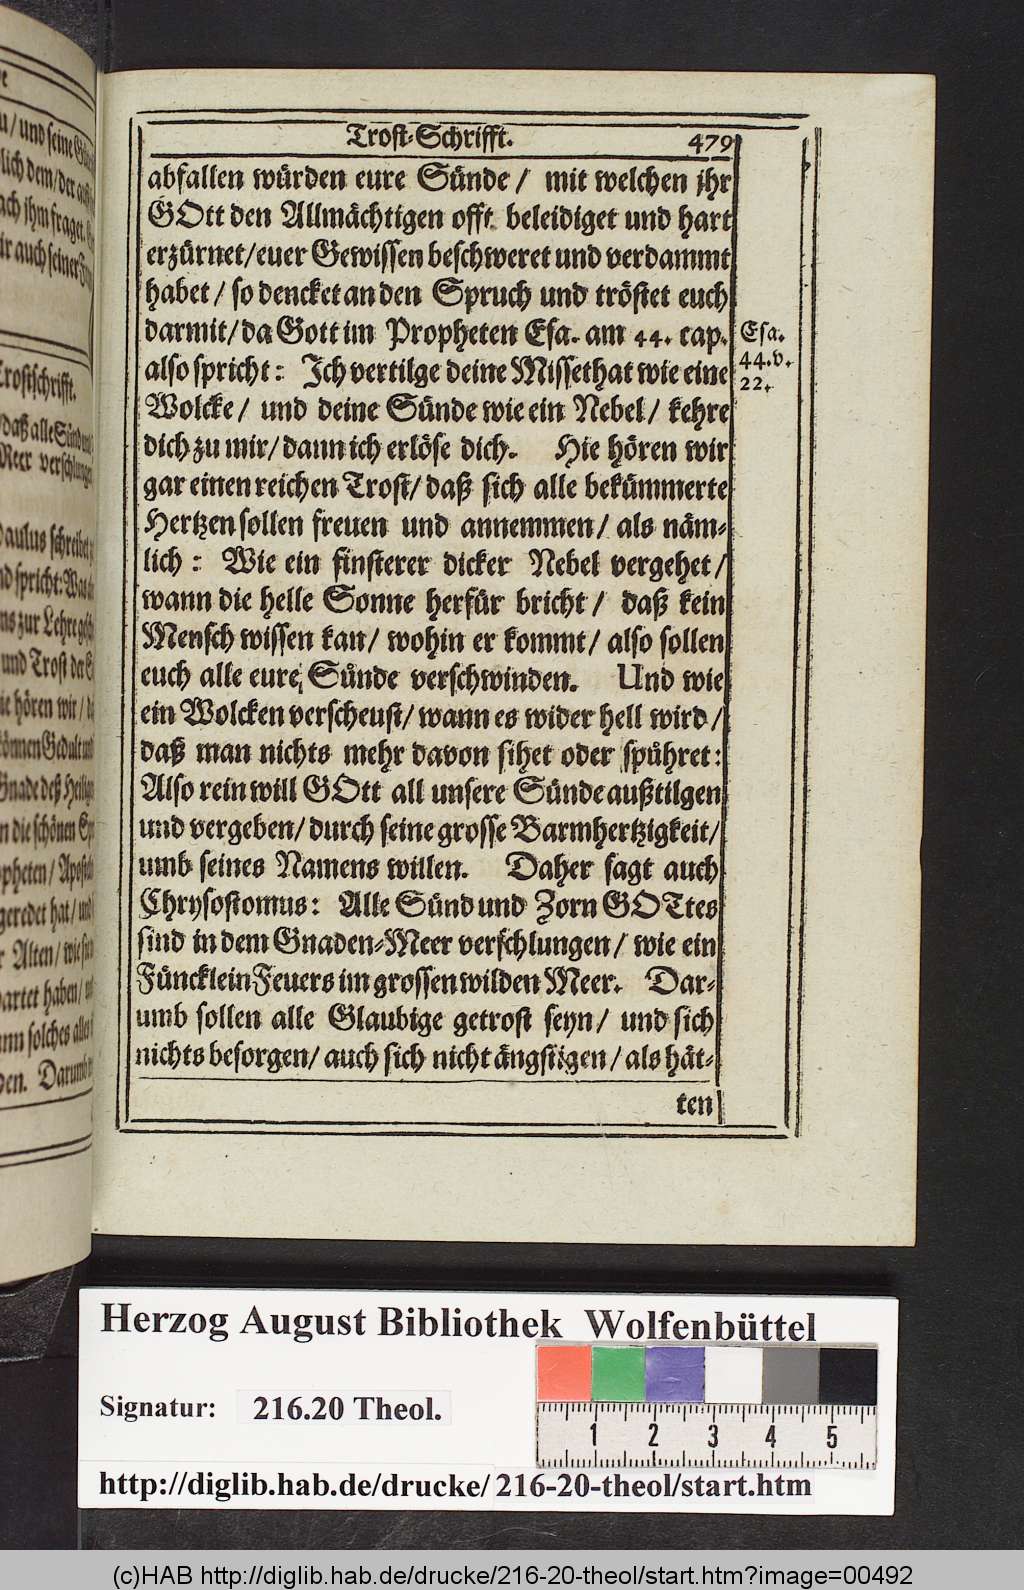 Trost-Schrifft. 479
abfallen würden eure Sünde / mit welchen jhr
GOtt den Allmächtigen offt beleidiget und hart
erzürnet/euer Gewissen beschweret und verdammt
habet / so dencket an den Spruch und tröstet euch
darmit/ da Gott im Propheten Esa. am 44. cap.
also spricht: Ich vertilge deine Missethat wie eine
Wolcke/ und deine Sünde wie ein Nebel/ kehre
dich zu mir/ dann ich erlöse dich. Hie hören wir
gar einen reichen Trost/ daß sich alle bekümmerte
Hertzen sollen freuen und annemmen/ als näm-
lich: Wie ein finsterer dicker Nebel vergehet/
wann die helle Sonne herfür bricht/ daß kein
Mensch wissen kan/ wohin er kommt/ also sollen
euch alle eure Sünde verschwinden. Und wie
ein Wolcken verscheust/ wann es wider hell wird/
daß man nichts mehr davon sihet oder spühret:
Also rein will GOtt all unsere Sünde außtilgen
und vergeben/ durch seine grosse Barmhertzigkeit/
umb seines Namens willen. Daher sagt auch
Chrysostomus: Alle Sünd und Zorn GOTtes
sind in dem Gnaden-Meer verschlungen/ wie ein
Füncklein Feuers im grossen wilden Meer. Dar-
umb sollen alle Glaubige getrost seyn/ und sich
nichts besorgen/ auch sich nicht ängstigen/ als hät-
ten
Esa.
44.v.
22.
u/ und seine
lich dem/ der
ach jhm fraget.
ir auch seiner
Trostschrifft.
daß alle Sünd
Meer verschlungen
Paulus schreibet
nd spricht: Was
ns zur Lehre
und Trost der
ie hören wir/
können Gedult und
Gnade deß Heilig
n die schönen
opheten/ Aposteln
geredet hat/ und
r Alten/ wie sie
wartet haben/
ann solches alles
den. Darumb
Herzog August Bibliothek Wolfenbüttel
Signatur: 216.20 Theol.
1 2 3 4 5
http://diglib.hab.de/drucke/216-20-theol/start.htm
(c)HAB http://diglib.hab.de/drucke/216-20-theol/start.htm?image=00492